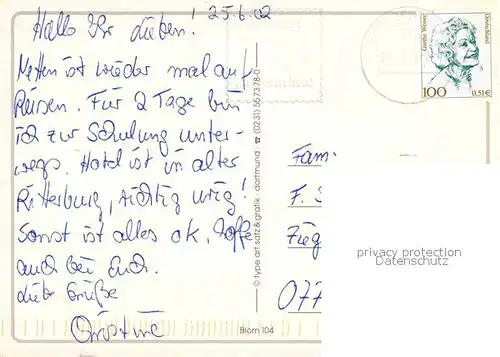 25.6.02
Hallo Ihr Lieben!
Metten ist wieder mal auf
Reisen. Für 2 Tage bin
ich zur Schulung unter-
wegs. Hotel ist in alter
Ritterburg, richtig urig!
Sonst ist alles ok, hoffe
auch bei Euch.
Liebe Grüße
Christine
© type art satz & grafik · dortmund ☎ (0231) 5673 78-0
Blom 104
Grethe Weiser
Deutschland
100
0,51€
Fam
F. S
Zieg
077
privacy protection
Datenschutz